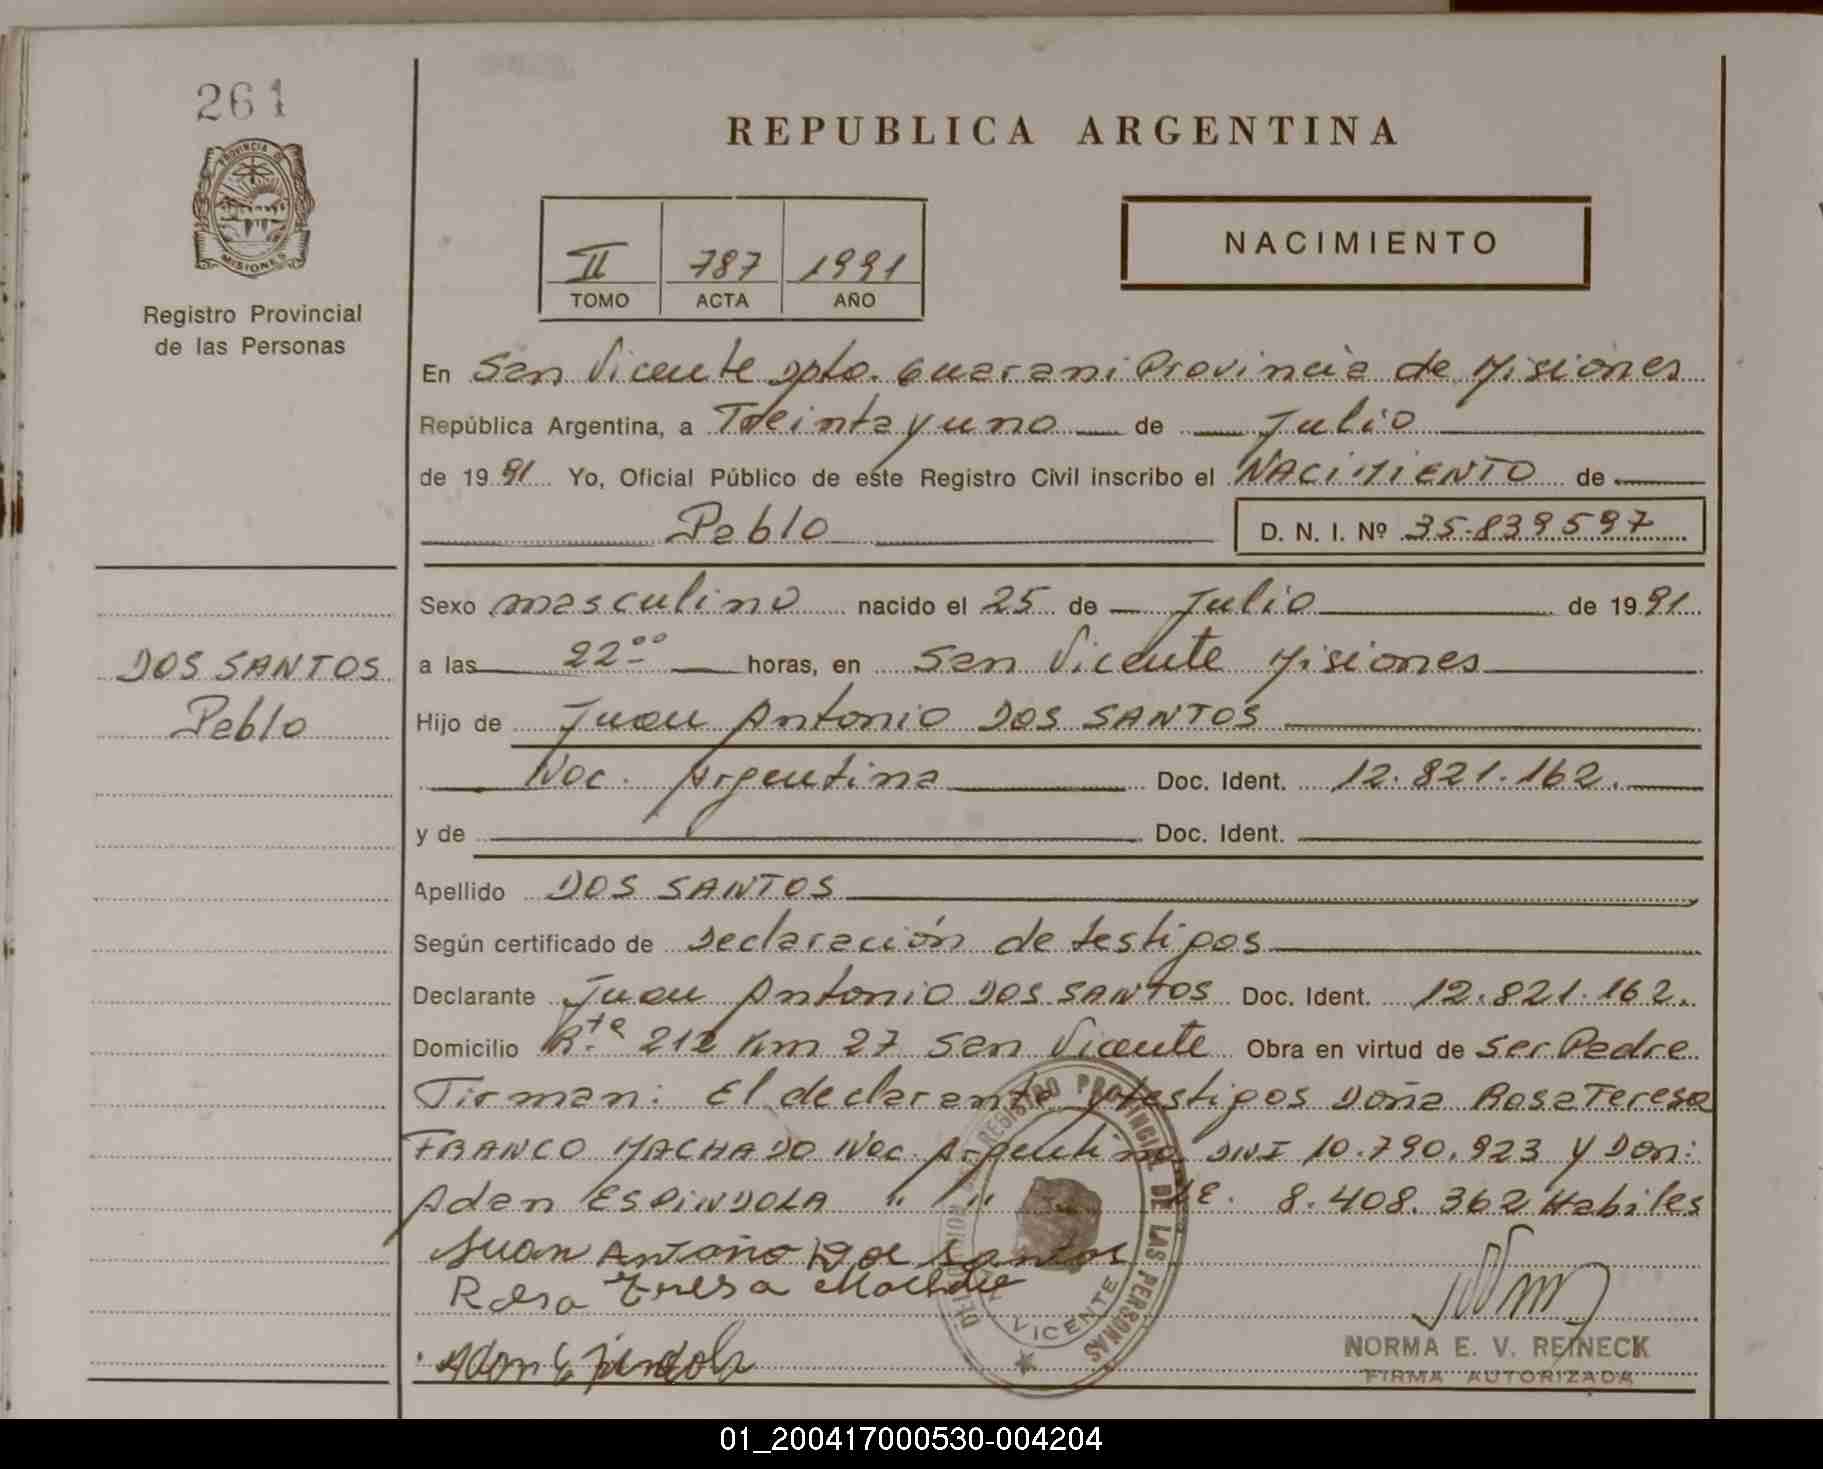 261
PROVINCIA DE
MISIONES
Registro Provincial
de las Personas
DOS SANTOS
Pablo
REPUBLICA ARGENTINA
II 787 1991
TOMO ACTA AÑO
NACIMIENTO
En San Vicente Dpto. Guarani Provincia de Misiones
República Argentina, a Treinta y uno de Julio
de 19 91 Yo, Oficial Público de este Registro Civil inscribo el NACIMIENTO de
Pablo D. N. I. Nº 35.839597
Sexo masculino nacido el 25 de Julio de 19 91
a las 22 oo horas, en San Vicente Misiones
Hijo de Juan Antonio DOS SANTOS
Nac. Argentina Doc. Ident. 12.821.162.
y de Doc. Ident.
Apellido DOS SANTOS
Según certificado de Declaración de testigos
Declarante Juan Antonio DOS SANTOS Doc. Ident. 12.821.162.
Domicilio Rta 212 Km 27 San Vicente Obra en virtud de ser Padre
Firman: El declarante y testigos Doña Rosa Teresa
FRANCO MACHADO Nac. Argentina DNI 10.790.923 y Don:
Adan ESPINDOLA " " LE. 8.408.362 Habiles
Juan Antoño Dos Santos
Rosa Teresa
NORMA E. V. REINECK
FIRMA AUTORIZADA
REGISTRO PROVINCIAL DE LAS PERSONAS
VICENTE
01_200417000530-004204